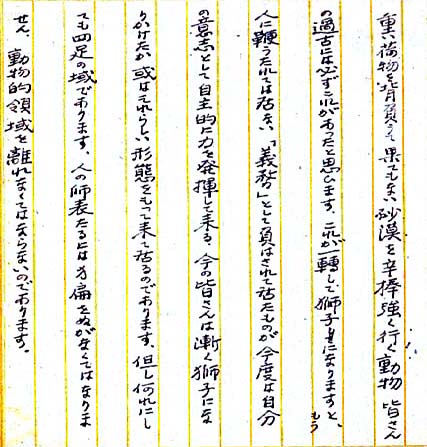 重い荷物を背負うて果てもない砂漠を辛棒強く行く動物 皆さん
の過古には必ずこれがあったと思ひます、これが一轉して獅子になりますと、もう
人に鞭うたれては居ない「義務」として負はされて居たものが今度は自分
の意志として自主的に力を発揮して来る、今の皆さんは漸く獅子にな
りかけたか或はそれらしい形態をもって来て居るのであります、但し何れにし
ても四足の域であります、人の師表たるには扁をぬがなくてはなりま
せん、動物的領域を離れなくてはならないのであります。